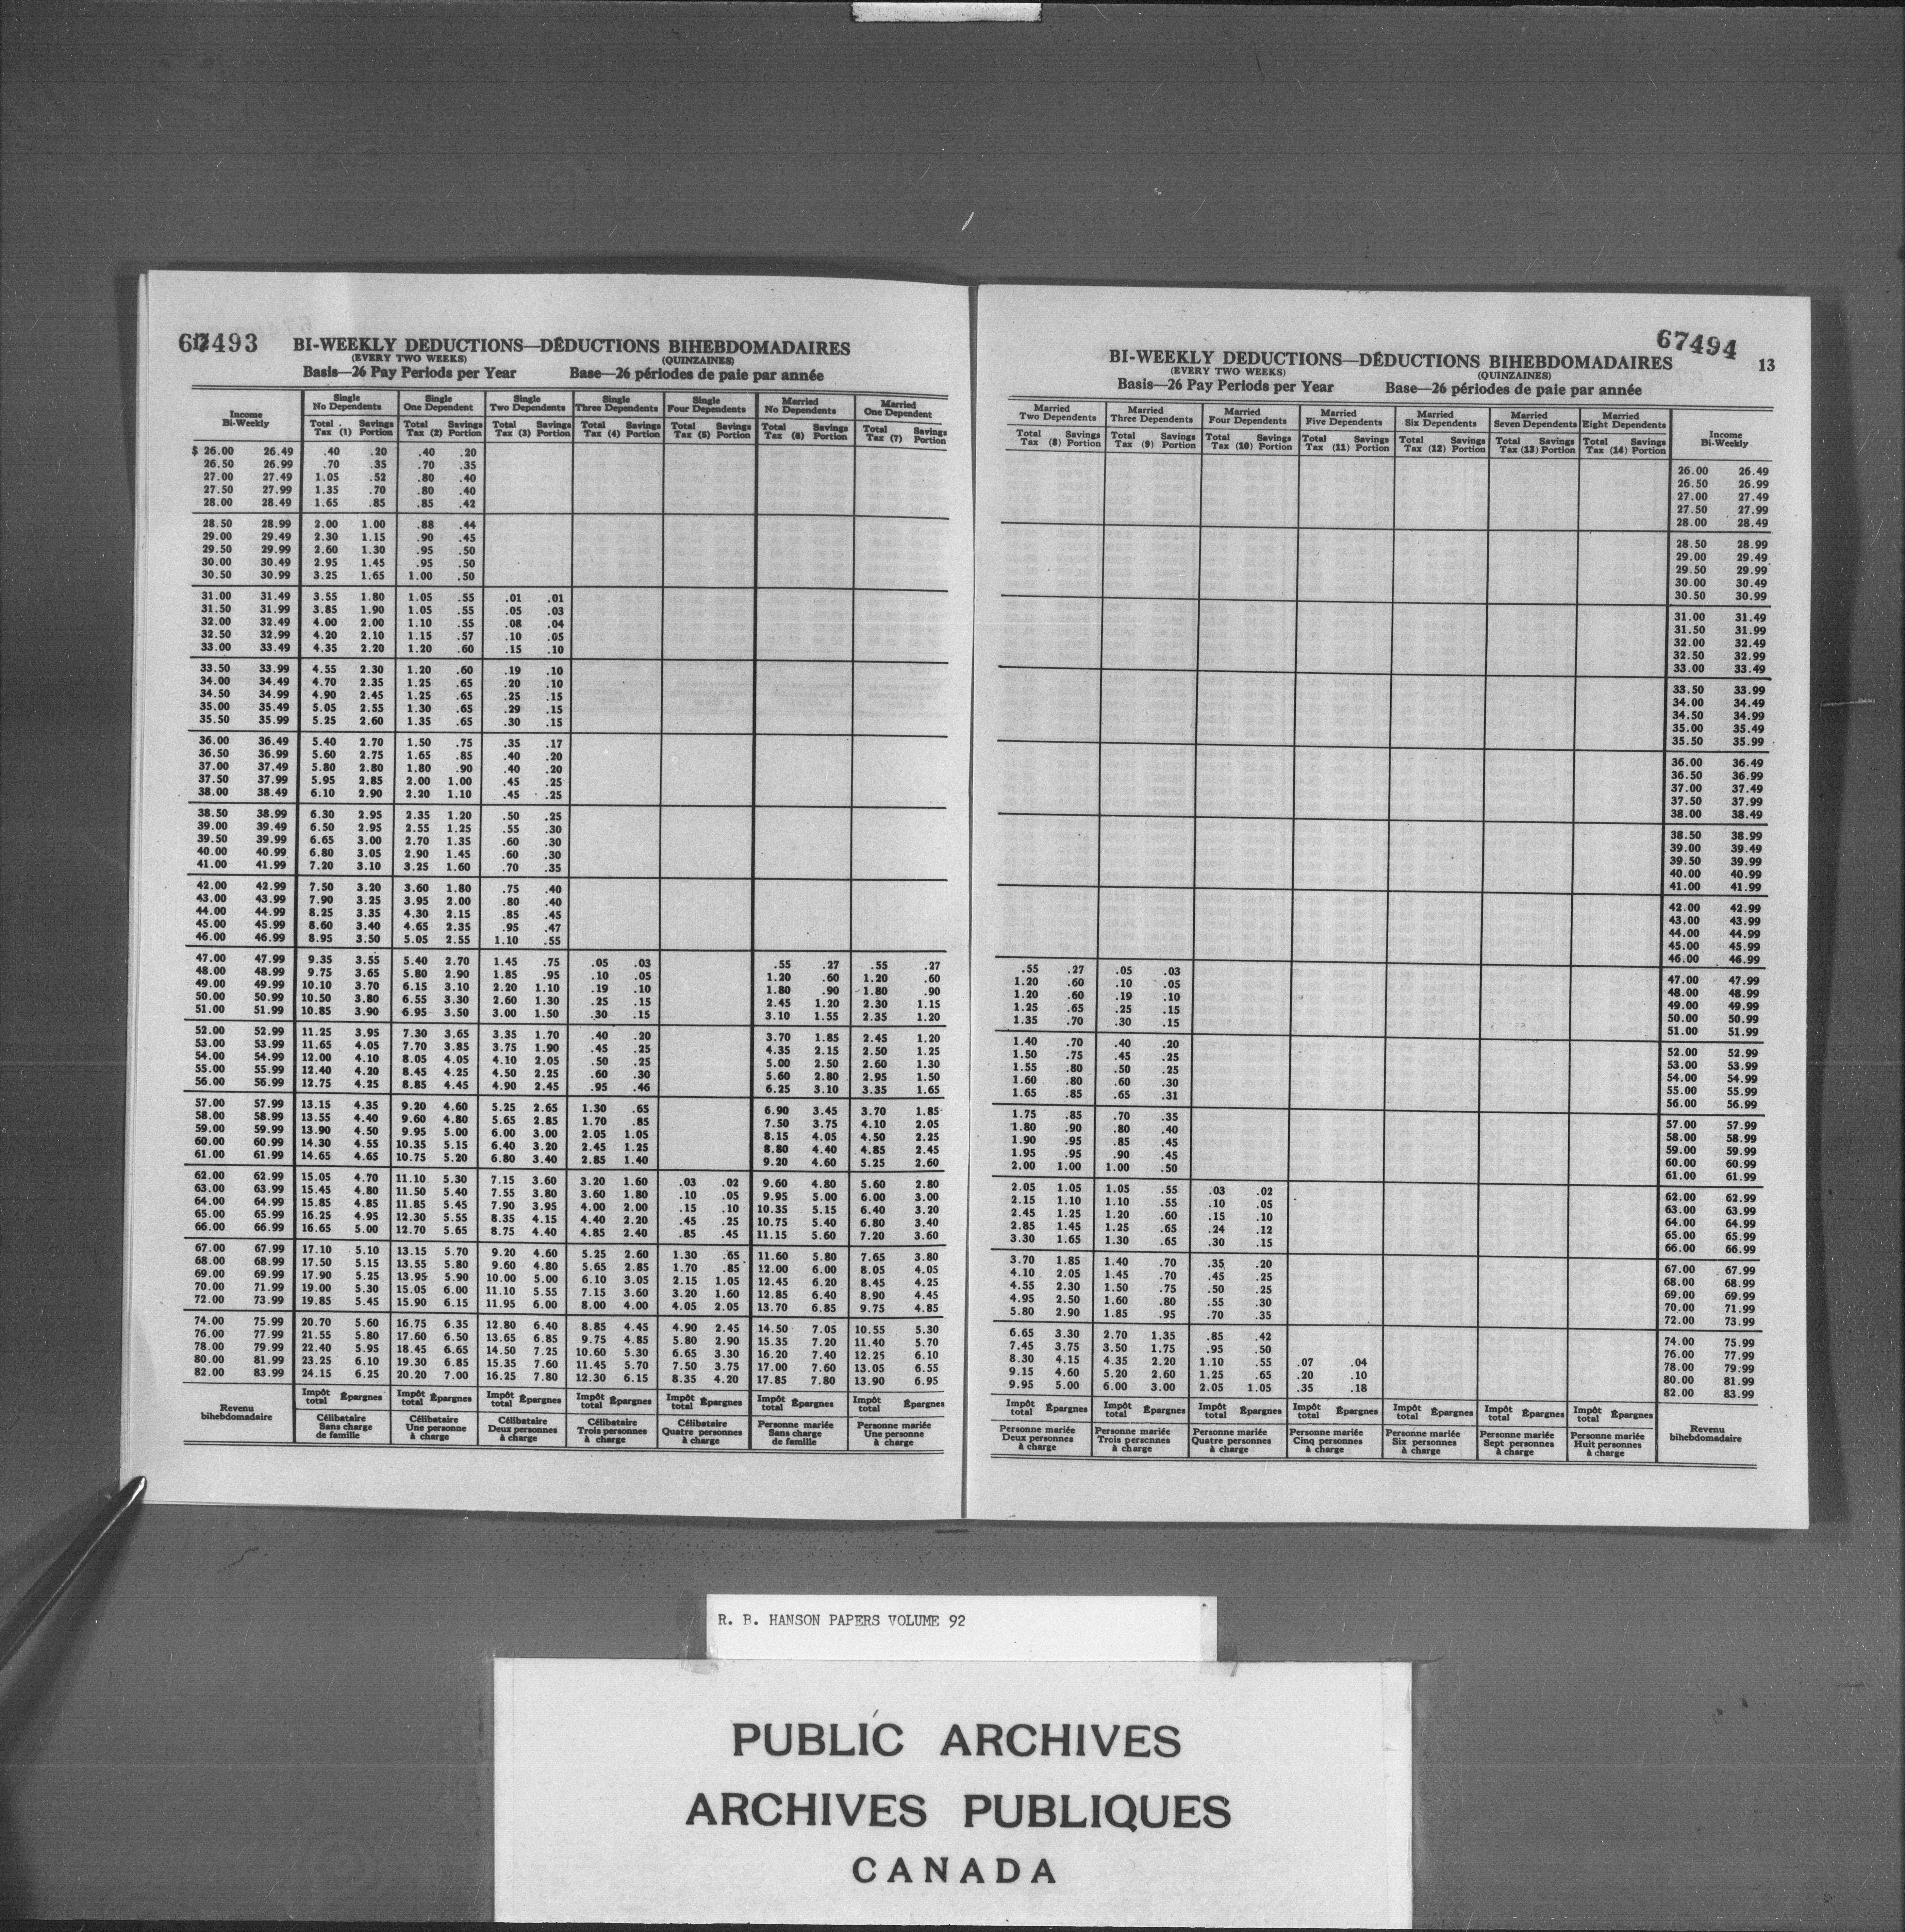 67493
12
BI-WEEKLY DEDUCTIONS—DÉDUCTIONS BIHEBDOMADAIRES
(EVERY TWO WEEKS) (QUINZAINES)
Basis—26 Pay Periods per Year Base—26 périodes de paie par année
Income Bi-Weekly | Single No Dependents | Single One Dependent | Single Two Dependents | Single Three Dependents | Single Four Dependents | Married No Dependents | Married One Dependent
Total Tax (1) Savings Portion | Total Tax (2) Savings Portion | Total Tax (3) Savings Portion | Total Tax (4) Savings Portion | Total Tax (5) Savings Portion | Total Tax (6) Savings Portion | Total Tax (7) Savings Portion
$ 26.00 26.49 .40 .20 .40 .20
26.50 26.99 .70 .35 .70 .35
27.00 27.49 1.05 .52 .80 .40
27.50 27.99 1.35 .70 .80 .40
28.00 28.49 1.65 .85 .85 .42
28.50 28.99 2.00 1.00 .88 .44
29.00 29.49 2.30 1.15 .90 .45
29.50 29.99 2.60 1.30 .95 .50
30.00 30.49 2.95 1.45 .95 .50
30.50 30.99 3.25 1.65 1.00 .50
31.00 31.49 3.55 1.80 1.05 .55 .01 .01
31.50 31.99 3.85 1.90 1.05 .55 .05 .03
32.00 32.49 4.00 2.00 1.10 .55 .08 .04
32.50 32.99 4.20 2.10 1.15 .57 .10 .05
33.00 33.49 4.35 2.20 1.20 .60 .15 .10
33.50 33.99 4.55 2.30 1.20 .60 .19 .10
34.00 34.49 4.70 2.35 1.25 .65 .20 .10
34.50 34.99 4.90 2.45 1.25 .65 .25 .15
35.00 35.49 5.05 2.55 1.30 .65 .29 .15
35.50 35.99 5.25 2.60 1.35 .65 .30 .15
36.00 36.49 5.40 2.70 1.50 .75 .35 .17
36.50 36.99 5.60 2.75 1.65 .85 .40 .20
37.00 37.49 5.80 2.80 1.80 .90 .40 .20
37.50 37.99 5.95 2.85 2.00 1.00 .45 .25
38.00 38.49 6.10 2.90 2.20 1.10 .45 .25
38.50 38.99 6.30 2.95 2.35 1.20 .50 .25
39.00 39.49 6.50 2.95 2.55 1.25 .55 .30
39.50 39.99 6.65 3.00 2.70 1.35 .60 .30
40.00 40.99 6.80 3.05 2.90 1.45 .60 .30
41.00 41.99 7.20 3.10 3.25 1.60 .70 .35
42.00 42.99 7.50 3.20 3.60 1.80 .75 .40
43.00 43.99 7.90 3.25 3.95 2.00 .80 .40
44.00 44.99 8.25 3.35 4.30 2.15 .85 .45
45.00 45.99 8.60 3.40 4.65 2.35 .95 .47
46.00 46.99 8.95 3.50 5.05 2.55 1.10 .55
47.00 47.99 9.35 3.55 5.40 2.70 1.45 .75 .05 .03 .55 .27 .55 .27
48.00 48.99 9.75 3.65 5.80 2.90 1.85 .95 .10 .05 1.20 .60 1.20 .60
49.00 49.99 10.10 3.70 6.15 3.10 2.20 1.10 .19 .10 1.80 .90 1.80 .90
50.00 50.99 10.50 3.80 6.55 3.30 2.60 1.30 .25 .15 2.45 1.20 2.30 1.15
51.00 51.99 10.85 3.90 6.95 3.50 3.00 1.50 .30 .15 3.10 1.55 2.35 1.20
52.00 52.99 11.25 3.95 7.30 3.65 3.35 1.70 .40 .20 3.70 1.85 2.45 1.20
53.00 53.99 11.65 4.05 7.70 3.85 3.75 1.90 .45 .25 4.35 2.15 2.50 1.25
54.00 54.99 12.00 4.10 8.05 4.05 4.10 2.05 .50 .25 5.00 2.50 2.60 1.30
55.00 55.99 12.40 4.20 8.45 4.25 4.50 2.25 .60 .30 5.60 2.80 2.95 1.50
56.00 56.99 12.75 4.25 8.85 4.45 4.90 2.45 .95 .46 6.25 3.10 3.35 1.65
57.00 57.99 13.15 4.35 9.20 4.60 5.25 2.65 1.30 .65 6.90 3.45 3.70 1.85
58.00 58.99 13.55 4.40 9.60 4.80 5.65 2.85 1.70 .85 7.50 3.75 4.10 2.05
59.00 59.99 13.90 4.50 9.95 5.00 6.00 3.00 2.05 1.05 8.15 4.05 4.50 2.25
60.00 60.99 14.30 4.55 10.35 5.15 6.40 3.20 2.45 1.25 8.80 4.40 4.85 2.45
61.00 61.99 14.65 4.65 10.75 5.20 6.80 3.40 2.85 1.40 9.20 4.60 5.25 2.60
62.00 62.99 15.05 4.70 11.10 5.30 7.15 3.60 3.20 1.60 .03 .02 9.60 4.80 5.60 2.80
63.00 63.99 15.45 4.80 11.50 5.40 7.55 3.80 3.60 1.80 .10 .05 9.95 5.00 6.00 3.00
64.00 64.99 15.85 4.85 11.85 5.45 7.90 3.95 4.00 2.00 .15 .10 10.35 5.15 6.40 3.20
65.00 65.99 16.25 4.95 12.30 5.55 8.35 4.15 4.40 2.20 .45 .25 10.75 5.40 6.80 3.40
66.00 66.99 16.65 5.00 12.70 5.65 8.75 4.40 4.85 2.40 .85 .45 11.15 5.60 7.20 3.60
67.00 67.99 17.10 5.10 13.15 5.70 9.20 4.60 5.25 2.60 1.30 .65 11.60 5.80 7.65 3.80
68.00 68.99 17.50 5.15 13.55 5.80 9.60 4.80 5.65 2.85 1.70 .85 12.00 6.00 8.05 4.05
69.00 69.99 17.90 5.25 13.95 5.90 10.00 5.00 6.10 3.05 2.15 1.05 12.45 6.20 8.45 4.25
70.00 71.99 19.00 5.30 15.05 6.00 11.10 5.55 7.15 3.60 3.20 1.60 12.85 6.40 8.90 4.45
72.00 73.99 19.85 5.45 15.90 6.15 11.95 6.00 8.00 4.00 4.05 2.05 13.70 6.85 9.75 4.85
74.00 75.99 20.70 5.60 16.75 6.35 12.80 6.40 8.85 4.45 4.90 2.45 14.50 7.05 10.55 5.30
76.00 77.99 21.55 5.80 17.60 6.50 13.65 6.85 9.75 4.85 5.80 2.90 15.35 7.20 11.40 5.70
78.00 79.99 22.40 5.95 18.45 6.65 14.50 7.25 10.60 5.30 6.65 3.30 16.20 7.40 12.25 6.10
80.00 81.99 23.25 6.10 19.30 6.85 15.35 7.60 11.45 5.70 7.50 3.75 17.00 7.60 13.05 6.55
82.00 83.99 24.15 6.25 20.20 7.00 16.25 7.80 12.30 6.15 8.35 4.20 17.85 7.80 13.90 6.95
Revenu bihebdomadaire | Impôt total Épargnes | Impôt total Épargnes | Impôt total Épargnes | Impôt total Épargnes | Impôt total Épargnes | Impôt total Épargnes | Impôt total Épargnes
Célibataire Sans charge de famille | Célibataire Une personne à charge | Célibataire Deux personnes à charge | Célibataire Trois personnes à charge | Célibataire Quatre personnes à charge | Personne mariée Sans charge de famille | Personne mariée Une personne à charge
67494
13
BI-WEEKLY DEDUCTIONS—DÉDUCTIONS BIHEBDOMADAIRES
(EVERY TWO WEEKS) (QUINZAINES)
Basis—26 Pay Periods per Year Base—26 périodes de paie par année
Married Two Dependents | Married Three Dependents | Married Four Dependents | Married Five Dependents | Married Six Dependents | Married Seven Dependents | Married Eight Dependents | Income Bi-Weekly
Total Tax (8) Savings Portion | Total Tax (9) Savings Portion | Total Tax (10) Savings Portion | Total Tax (11) Savings Portion | Total Tax (12) Savings Portion | Total Tax (13) Savings Portion | Total Tax (14) Savings Portion
26.00 26.49
26.50 26.99
27.00 27.49
27.50 27.99
28.00 28.49
28.50 28.99
29.00 29.49
29.50 29.99
30.00 30.49
30.50 30.99
31.00 31.49
31.50 31.99
32.00 32.49
32.50 32.99
33.00 33.49
33.50 33.99
34.00 34.49
34.50 34.99
35.00 35.49
35.50 35.99
36.00 36.49
36.50 36.99
37.00 37.49
37.50 37.99
38.00 38.49
38.50 38.99
39.00 39.49
39.50 39.99
40.00 40.99
41.00 41.99
42.00 42.99
43.00 43.99
44.00 44.99
45.00 45.99
46.00 46.99
.55 .27 .05 .03 47.00 47.99
1.20 .60 .10 .05 48.00 48.99
1.20 .60 .19 .10 49.00 49.99
1.25 .65 .25 .15 50.00 50.99
1.35 .70 .30 .15 51.00 51.99
1.40 .70 .40 .20 52.00 52.99
1.50 .75 .45 .25 53.00 53.99
1.55 .80 .50 .25 54.00 54.99
1.60 .80 .60 .30 55.00 55.99
1.65 .85 .65 .31 56.00 56.99
1.75 .85 .70 .35 57.00 57.99
1.80 .90 .80 .40 58.00 58.99
1.90 .95 .85 .45 59.00 59.99
1.95 .95 .90 .45 60.00 60.99
2.00 1.00 1.00 .50 61.00 61.99
2.05 1.05 1.05 .55 .03 .02 62.00 62.99
2.15 1.10 1.10 .55 .10 .05 63.00 63.99
2.45 1.25 1.20 .60 .15 .10 64.00 64.99
2.85 1.45 1.25 .65 .24 .12 65.00 65.99
3.30 1.65 1.30 .65 .30 .15 66.00 66.99
3.70 1.85 1.40 .70 .35 .20 67.00 67.99
4.10 2.05 1.45 .70 .45 .25 68.00 68.99
4.55 2.30 1.50 .75 .50 .25 69.00 69.99
4.95 2.50 1.60 .80 .55 .30 70.00 71.99
5.80 2.90 1.85 .95 .70 .35 72.00 73.99
6.65 3.30 2.70 1.35 .85 .42 74.00 75.99
7.45 3.75 3.50 1.75 .95 .50 76.00 77.99
8.30 4.15 4.35 2.20 1.10 .55 .07 .04 78.00 79.99
9.15 4.60 5.20 2.60 1.25 .65 .20 .10 80.00 81.99
9.95 5.00 6.00 3.00 2.05 1.05 .35 .18 82.00 83.99
Impôt total Épargnes | Impôt total Épargnes | Impôt total Épargnes | Impôt total Épargnes | Impôt total Épargnes | Impôt total Épargnes | Impôt total Épargnes | Revenu bihebdomadaire
Personne mariée Deux personnes à charge | Personne mariée Trois personnes à charge | Personne mariée Quatre personnes à charge | Personne mariée Cinq personnes à charge | Personne mariée Six personnes à charge | Personne mariée Sept personnes à charge | Personne mariée Huit personnes à charge
R. B. HANSON PAPERS VOLUME 92
PUBLIC ARCHIVES
ARCHIVES PUBLIQUES
CANADA